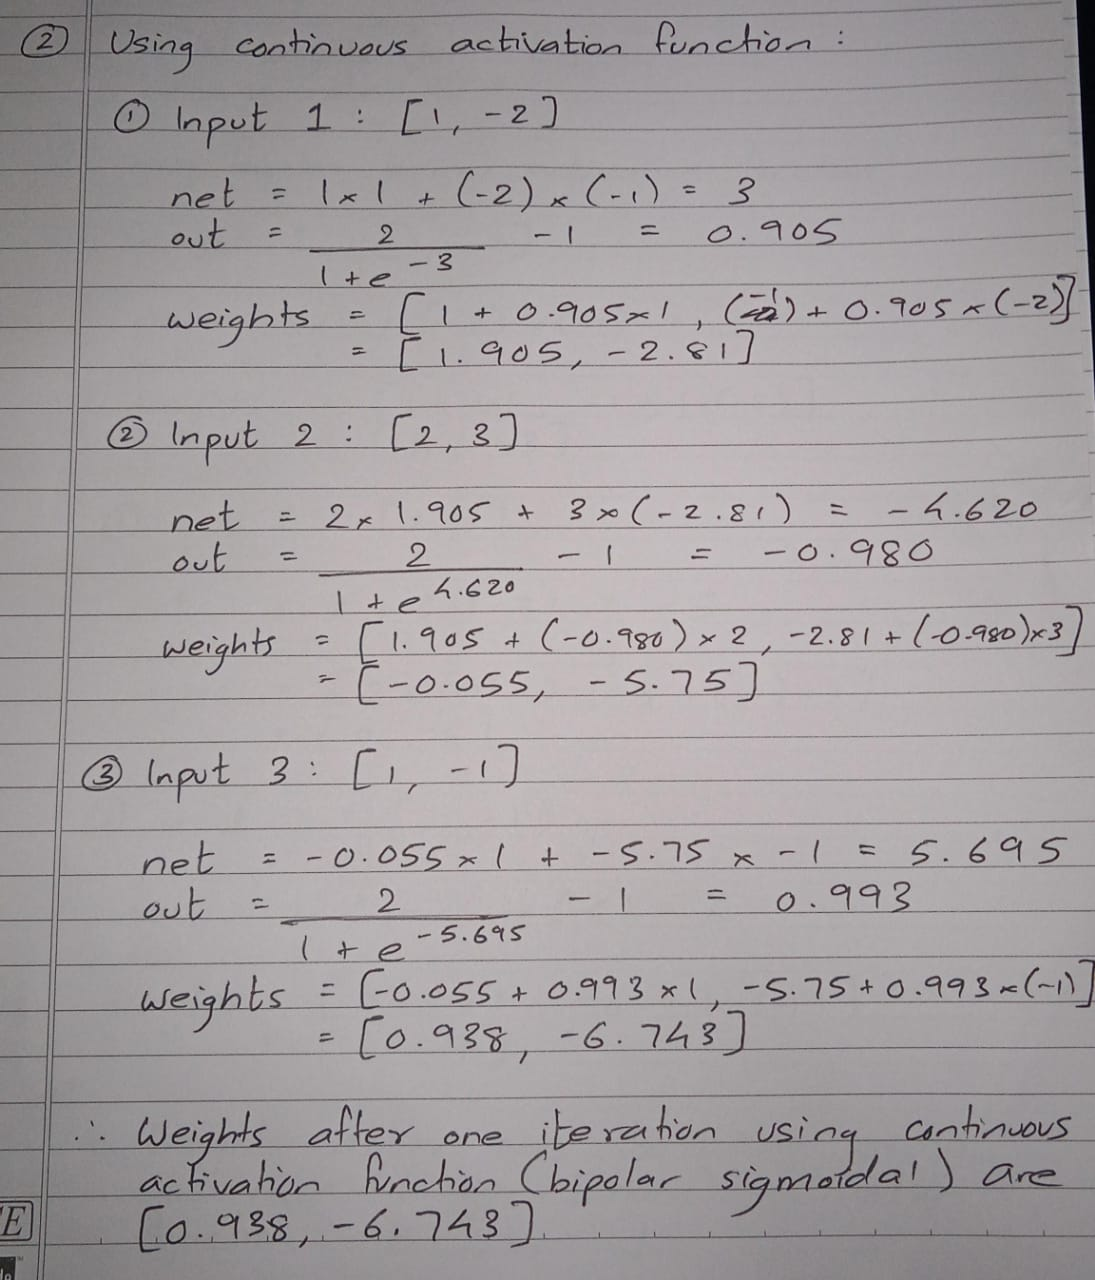 ② Using continuous activation function :
① Input 1 : [1, -2]
net = 1×1 + (-2)×(-1) = 3
out = 2 / (1+e^-3) -1 = 0.905
weights = [1 + 0.905×1, (-1) + 0.905×(-2)]
= [1.905, -2.81]
② Input 2 : [2, 3]
net = 2×1.905 + 3×(-2.81) = -4.620
out = 2 / (1+e^4.620) -1 = -0.980
weights = [1.905 + (-0.980)×2, -2.81+(-0.980)×3]
= [-0.055, -5.75]
③ Input 3 : [1, -1]
net = -0.055×1 + -5.75 × -1 = 5.695
out = 2 / (1+e^-5.695) -1 = 0.993
weights = [-0.055 + 0.993×1, -5.75+0.993×(-1)]
= [0.938, -6.743]
∴ Weights after one iteration using continuous
activation function (bipolar sigmoidal) are
[0.938, -6.743]
E